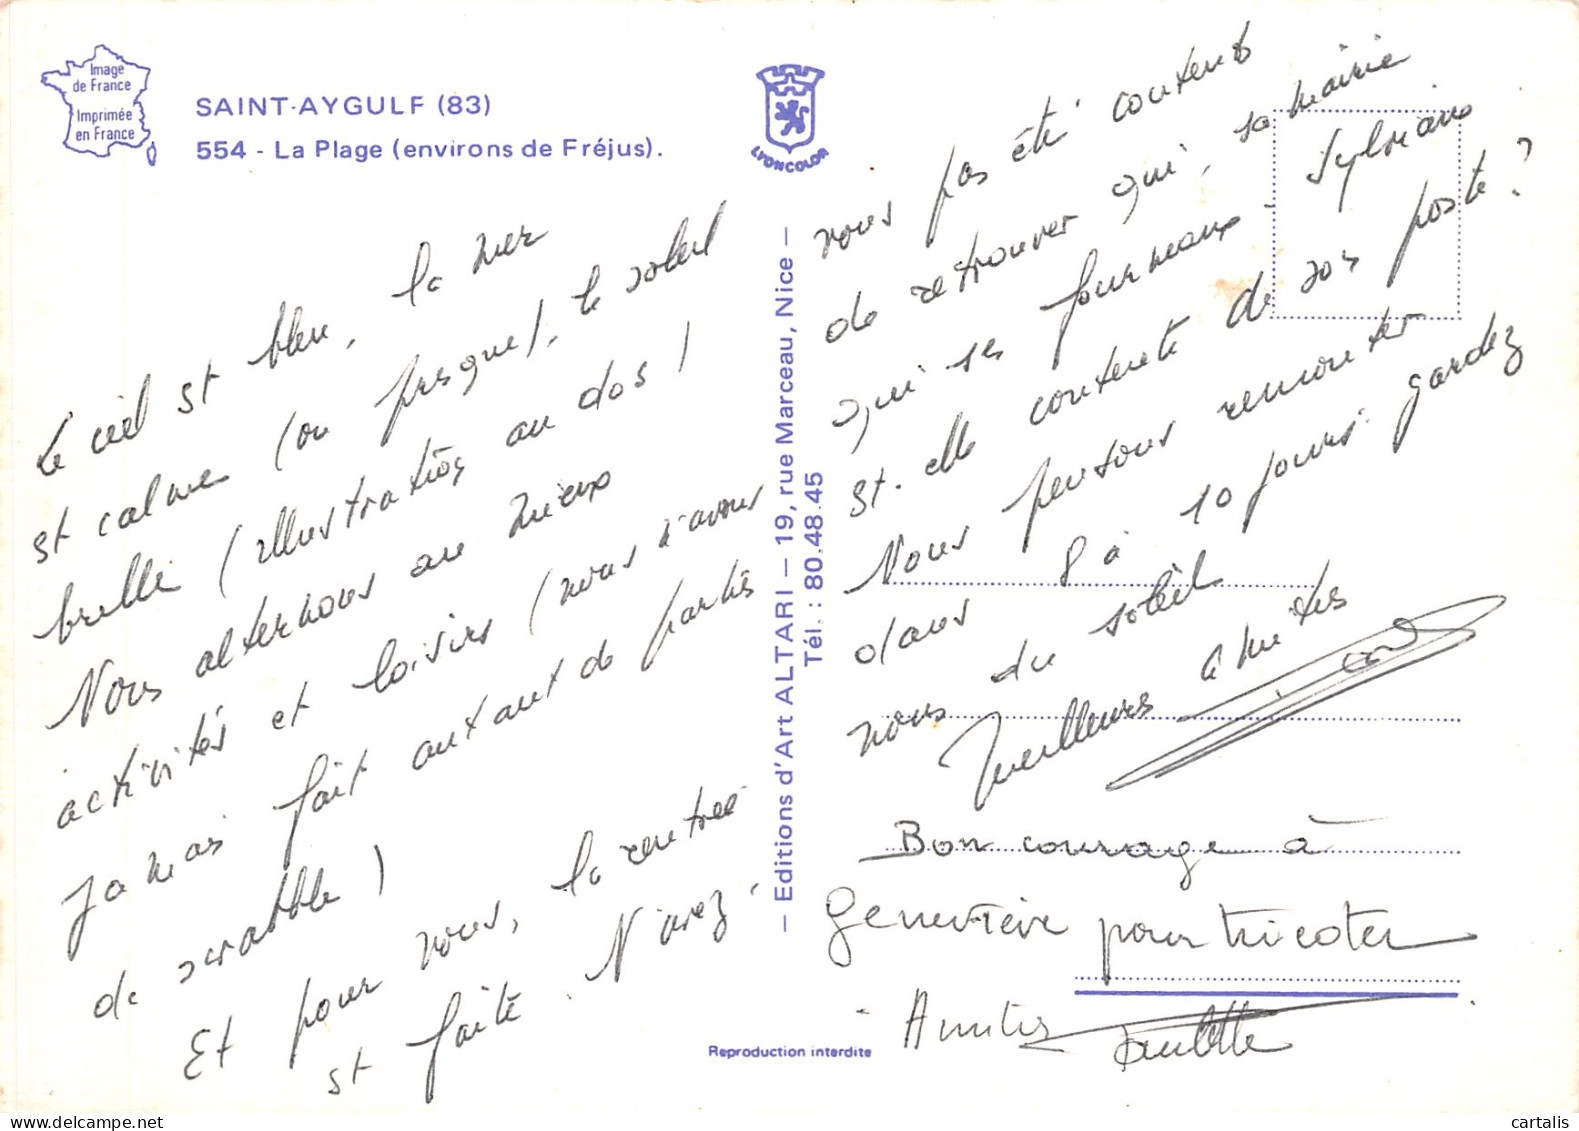 Image
de France
Imprimée
en France
SAINT-AYGULF (83)
554 - La Plage (environs de Fréjus).
LYONCOLOR
Le ciel st bleu, la mer
st calme (ou presque), le soleil
brille (illustration au dos)
Nous alternons au mieux
activités et loisirs (nous n'avons
jamais fait autant de parties
de scrabble)
Et pour vous, la rentrée
st faite. N'avez
- Editions d'Art ALTARI - 19, rue Marceau, Nice -
Tél. : 80.48.45
vous pas été contents
de retrouver qui, sa mairie
qui ses fourneaux - Sylviane
st-elle contente de son poste ?
Nous pensons remonter
dans 8 à 10 jours. gardez
nous du soleil
Meilleures amitiés
Bon courage à
Geneviève pour tricoter
Amitiés Paulette
Reproduction interdite
cartalis
www.delcampe.net